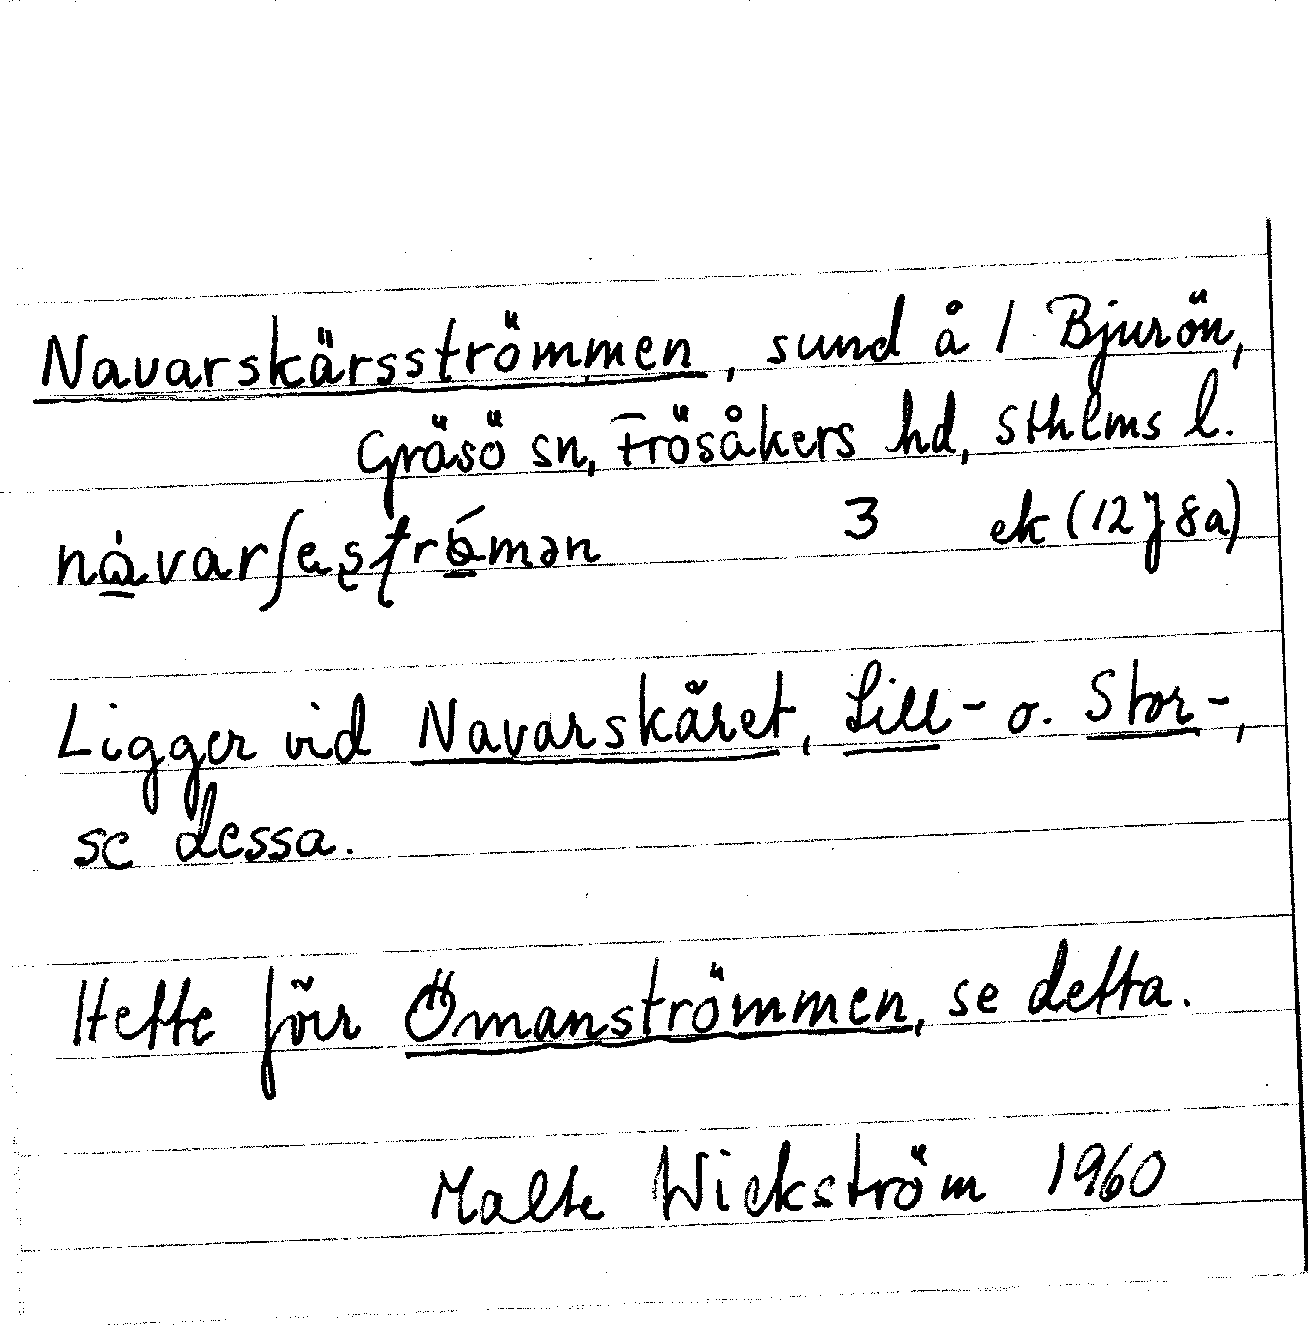 Navarskärsströmmen, sund å 1 Bjurön,
Gräsö sn, Frösåkers hd, Sthlms l.
3 ek (12J8a)
Ligger vid Navarskäret, Lill- o. Stor-,
se dessa.
Hette förr Ömanströmmen, se detta.
Malte Wickström 1960